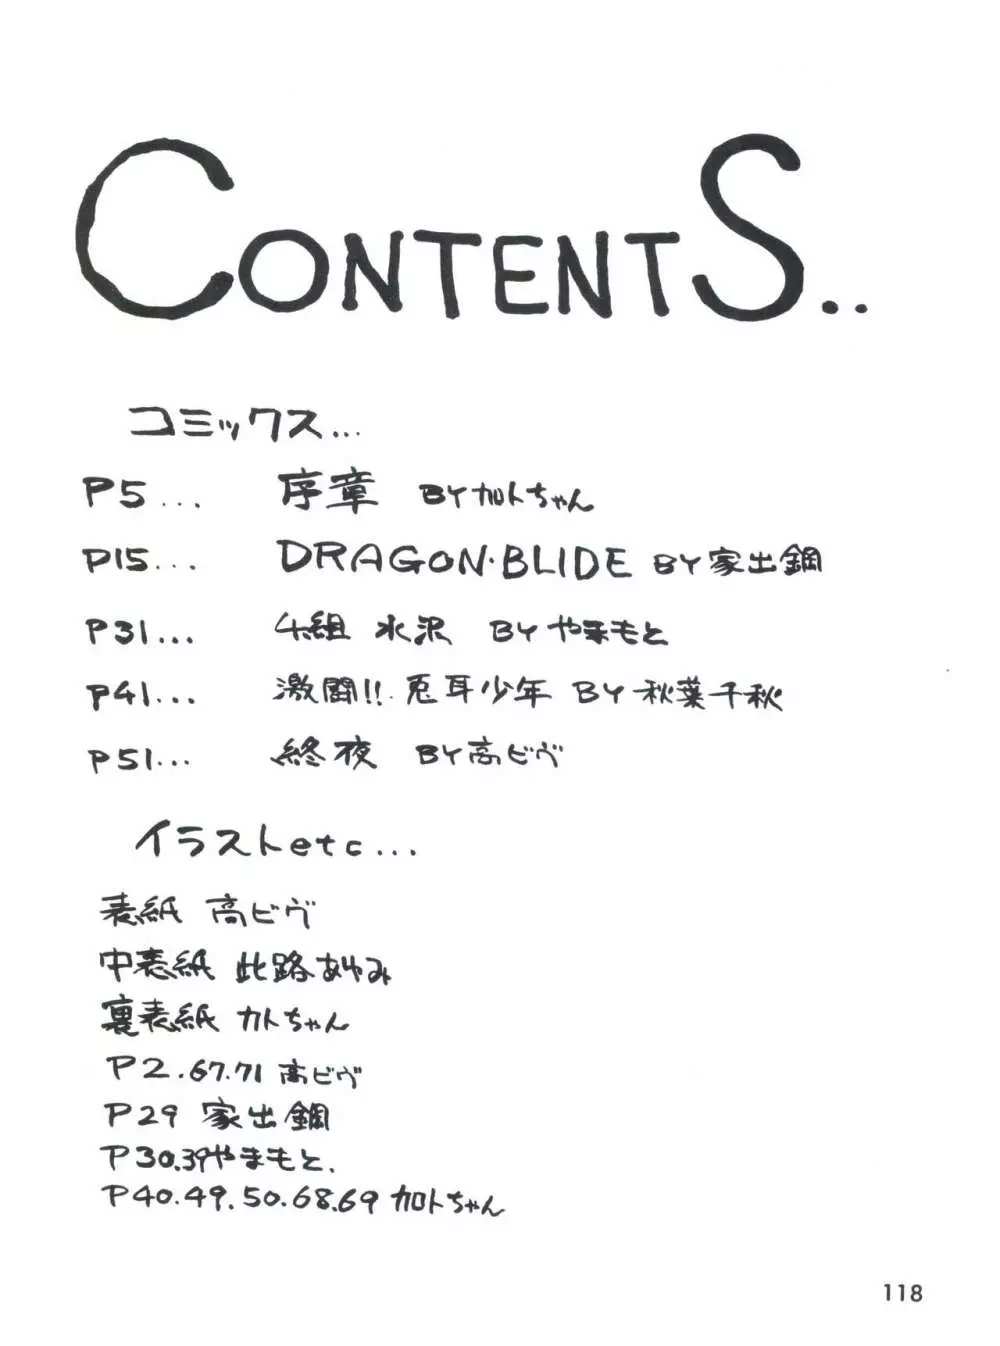 CONTENTS..
コミックス...
P5... 序章 BY カトちゃん
P15... DRAGON・BLIDE BY 家出鋼
P31... 4組 水沢 BY やまもと
P41... 激闘!!兎耳少年 BY 秋葉千秋
P51... 終夜 BY 高ビヴ
イラストetc...
表紙 高ビヴ
中表紙 此路あゆみ
裏表紙 カトちゃん
P2.67.71 高ビヴ
P29 家出鋼
P30.39やまもと.
P40.49.50.68.69 カトちゃん
118